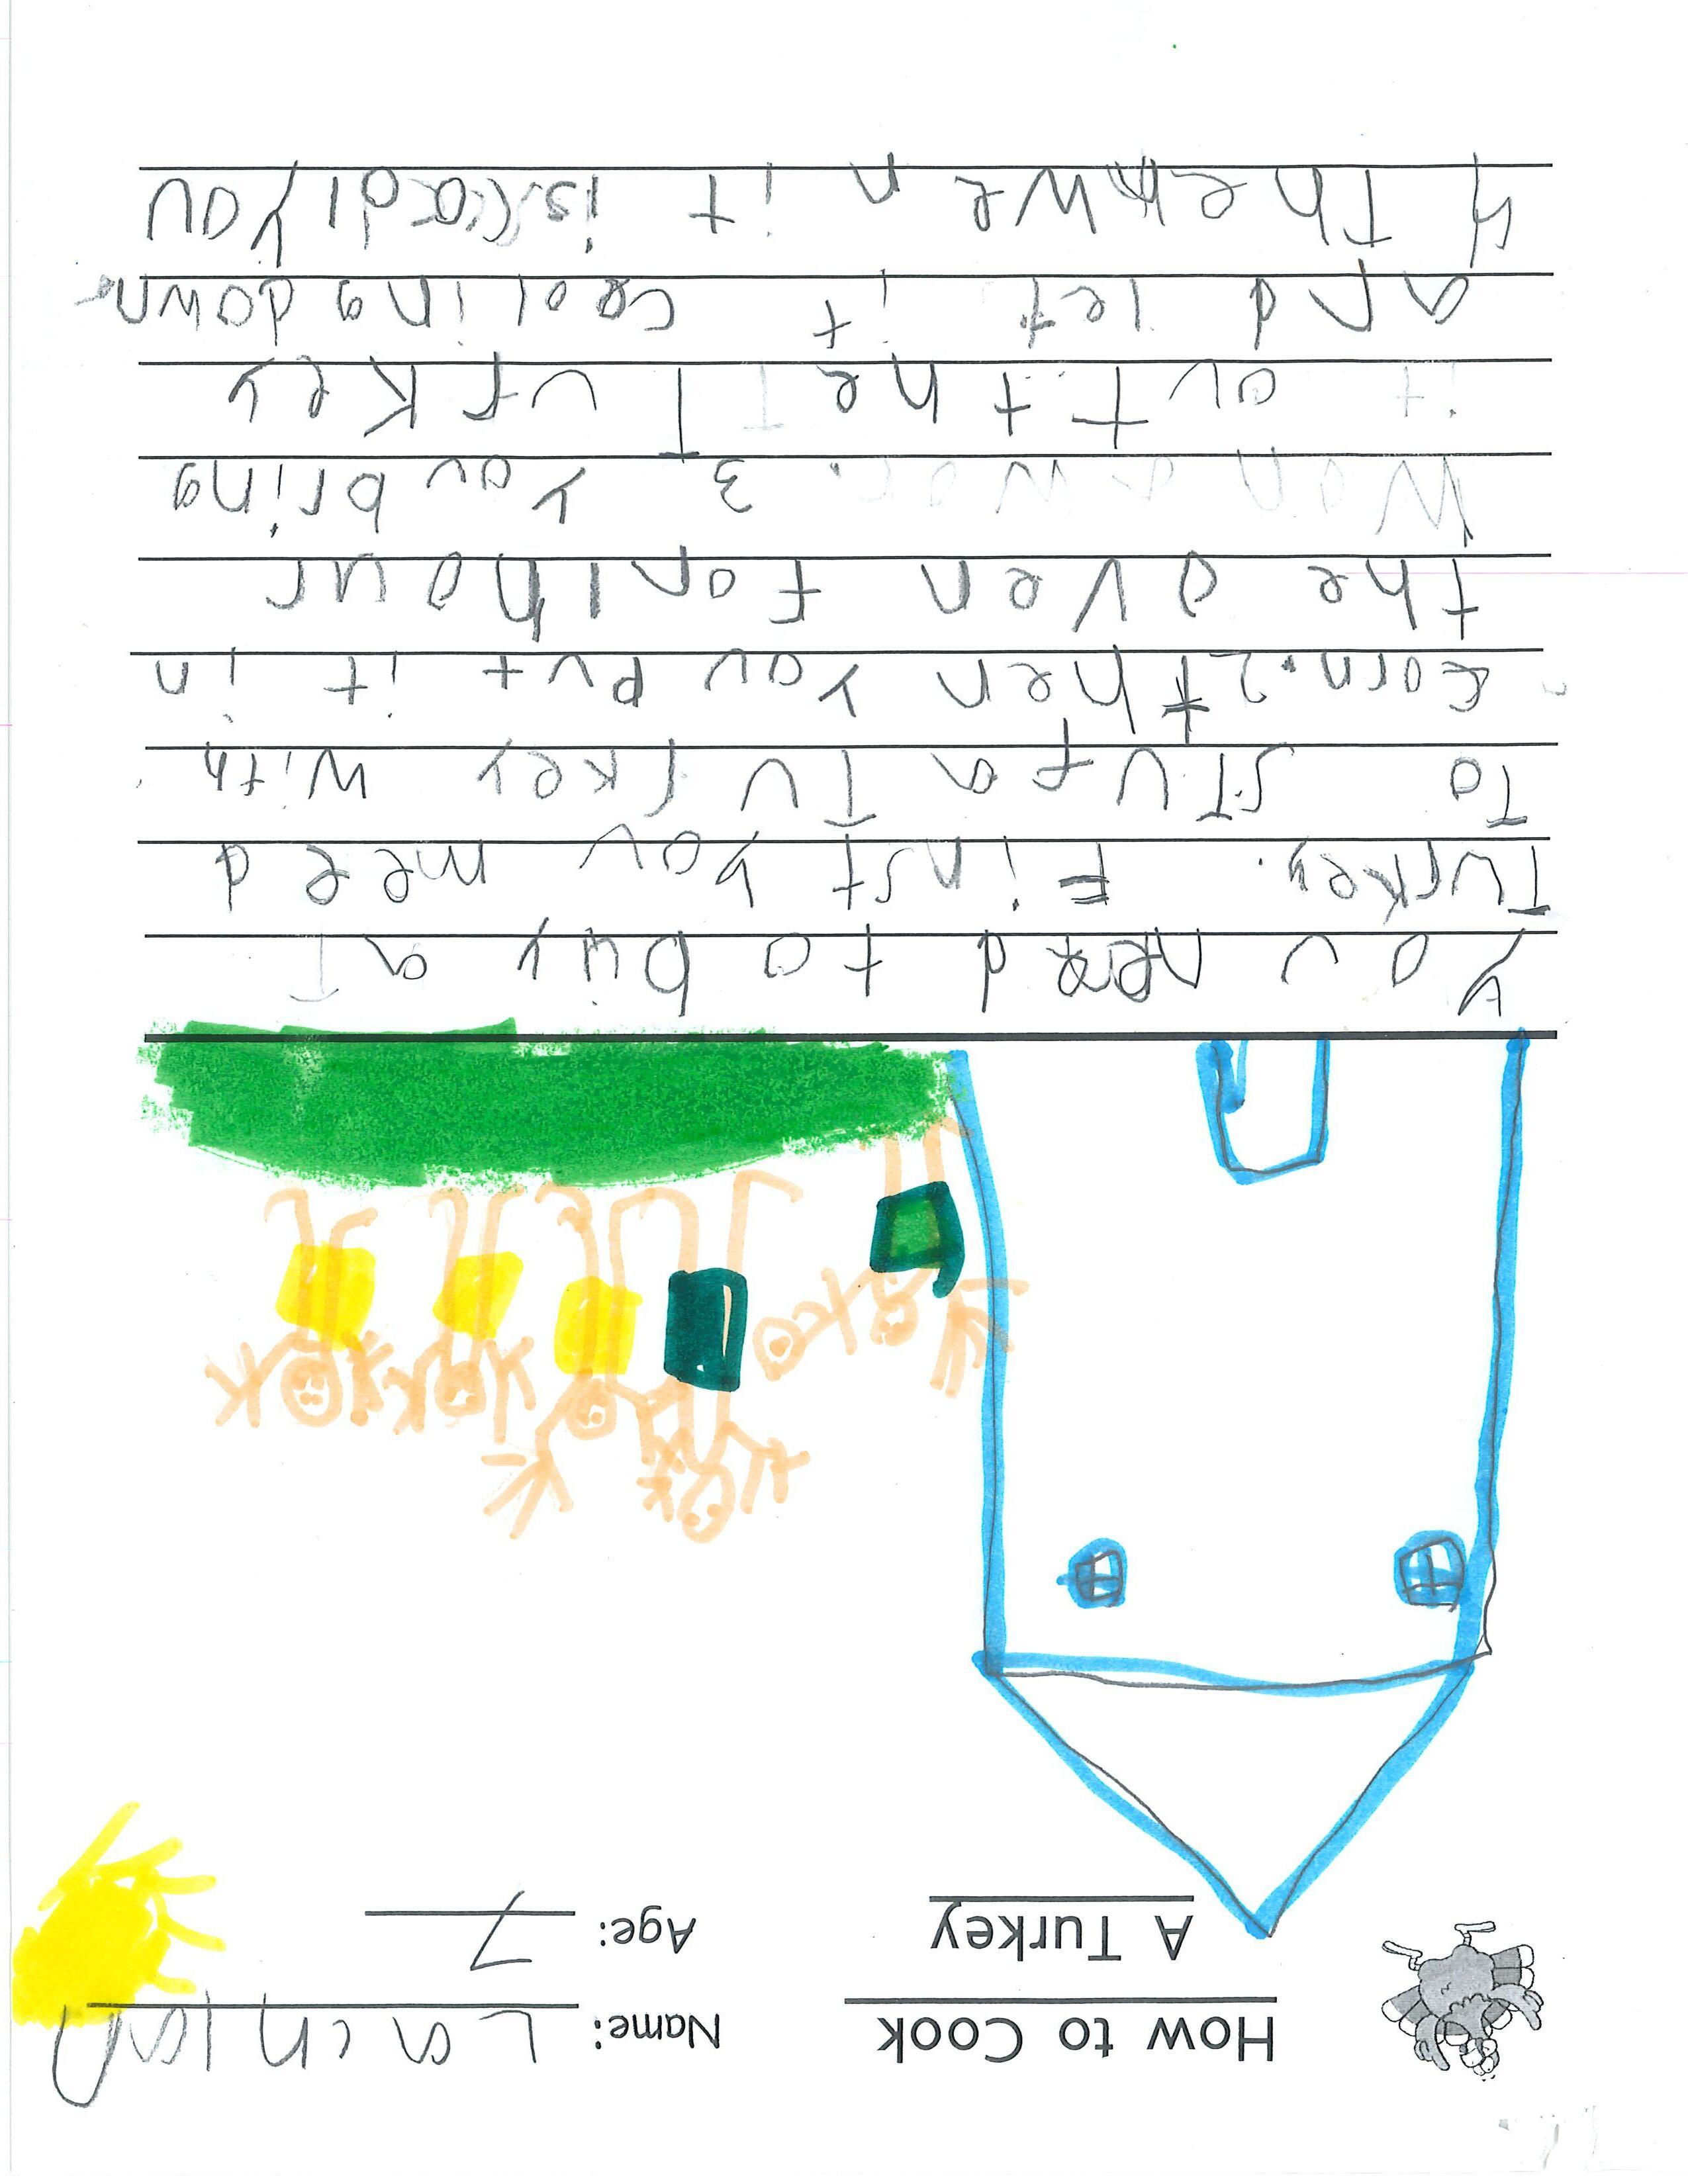 How to Cook
A Turkey
Name: Lachlan
Age: 7
You need to buy a T
Turkey. First you meed
To STUf a Turkey with
corn. 2 then you put it in
the oven for 1 hour
3 you bring
it out the Turkey
and let it cooling down
4 Then wen it is you